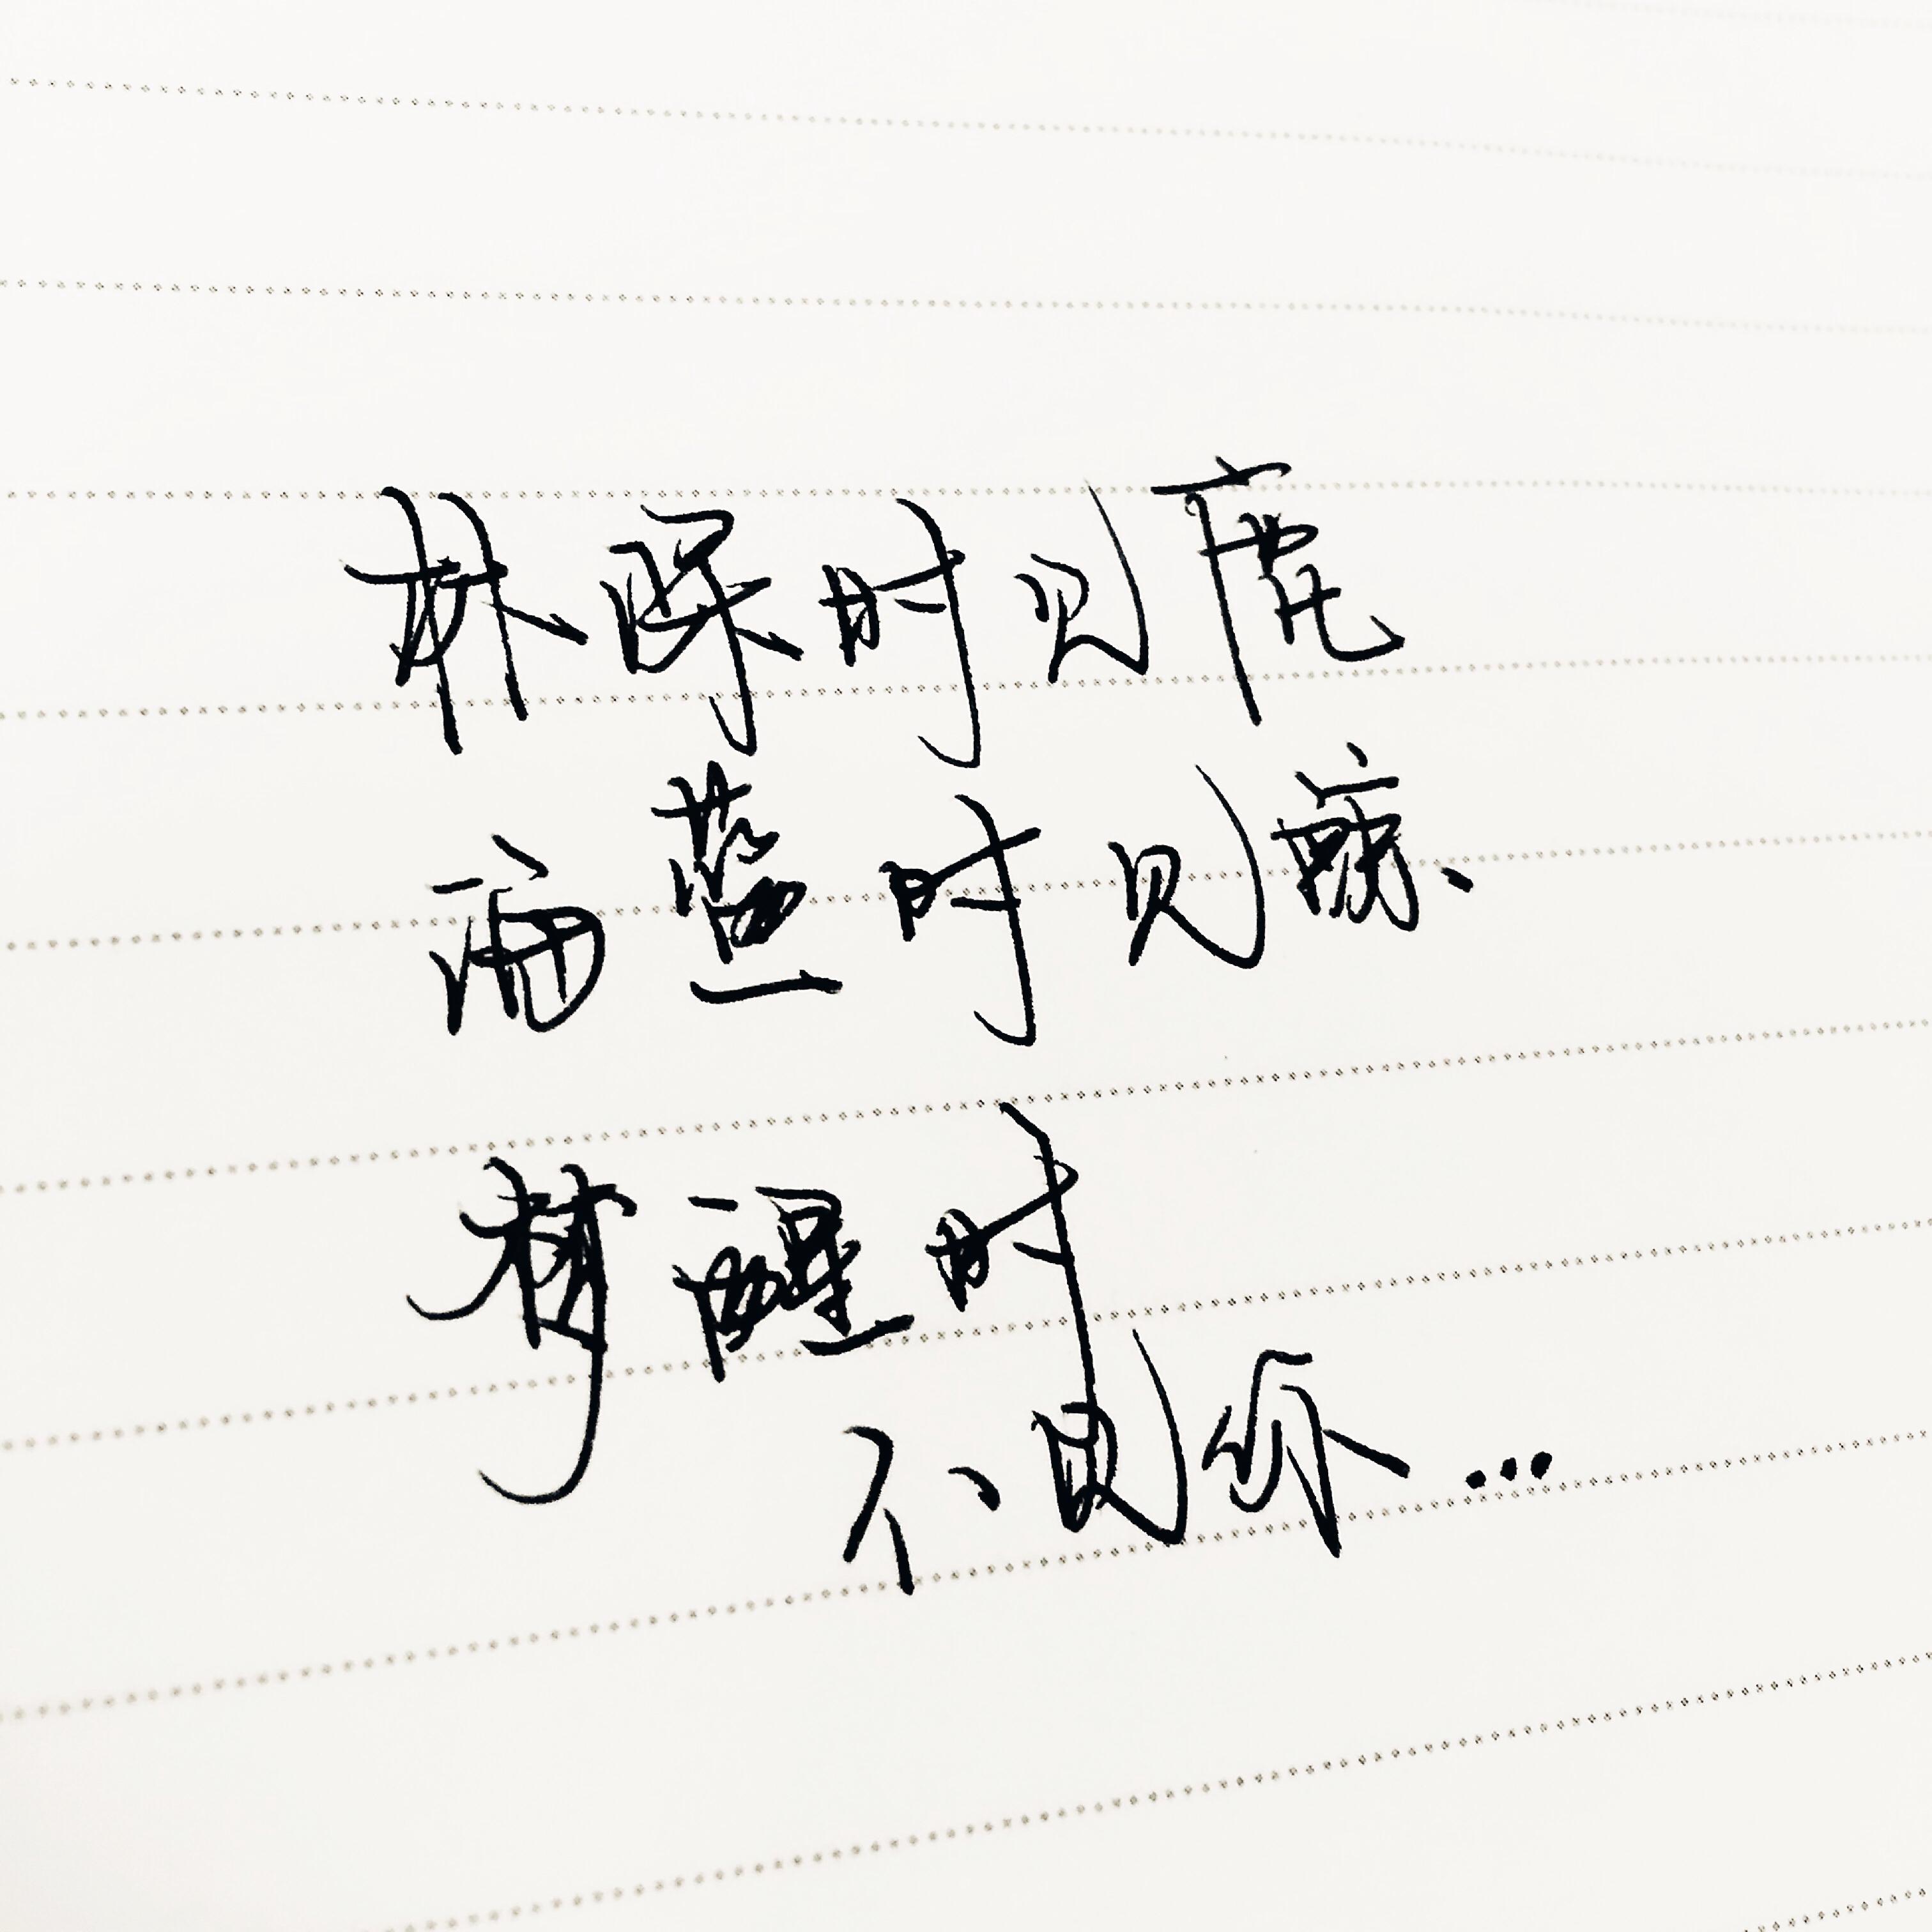 林深时见鹿
海蓝时见鲸
梦醒时
不见你...